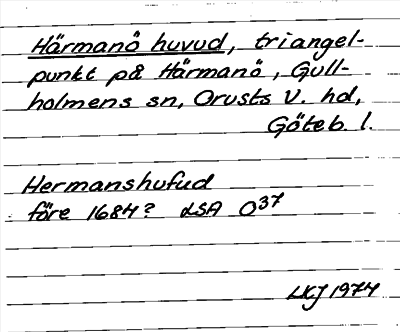 Härmanö huvud, triangel-
punkt på Härmanö, Gull-
holmens sn, Orusts V. hd,
Göteb. l.
Hermanshufud
före 1684? LSA O37
LKJ 1974